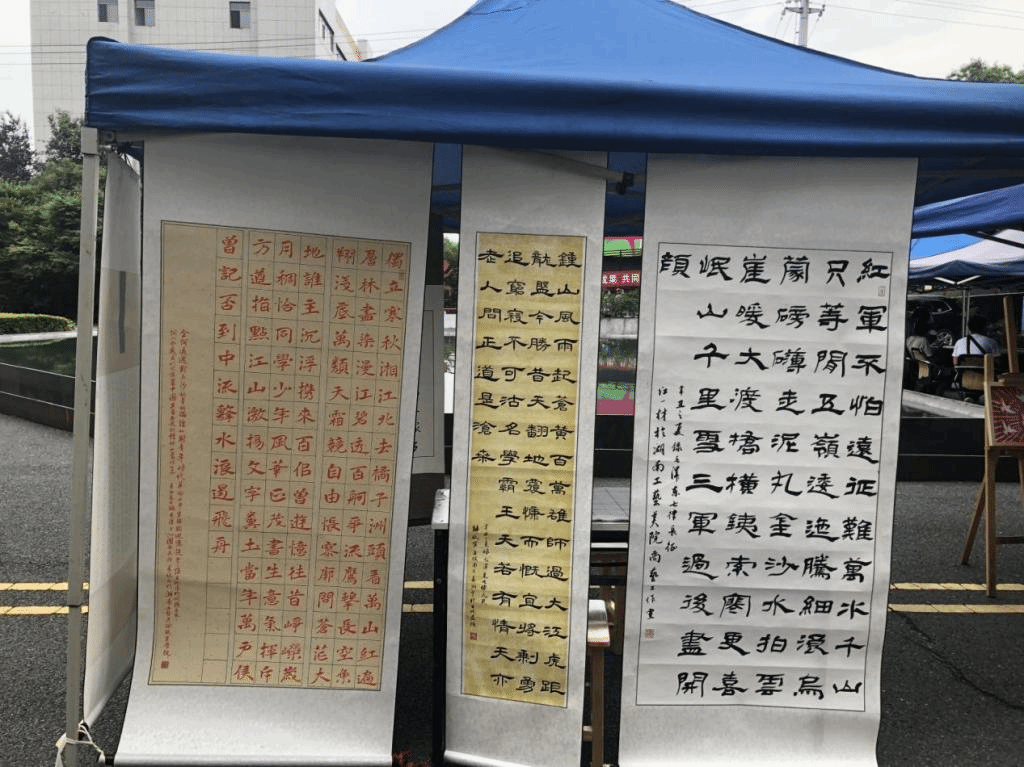 紅軍不怕遠征難萬水千山
只等閒五嶺逶迤騰細浪烏
蒙磅礴走泥丸金沙水拍雲
崖暖大渡橋橫鐵索寒更喜
岷山千里雪三軍過後盡開
顔
辛丑之夏錄毛澤東七律長征
江一材於湖南工藝美院尚藝工作室
鍾山風雨起蒼黃百萬雄師過大江虎距
龍盤今勝昔天翻地覆慷而慨宜將剩勇
追窮寇不可沽名學霸王天若有情天亦
老人間正道是滄桑
獨立寒秋湘江北去橘子洲頭看萬山紅遍
層林盡染漫江碧透百舸爭流鷹擊長空魚
翔淺底萬類天霜競自由悵寥廓問蒼茫大
地誰主沉浮携來百侶曾遊憶往昔崢嶸歲
月稠恰同學少年風華正茂書生意氣揮斥
方遒指點江山激揚文字糞土當年萬戶侯
曾記否到中流擊水浪遏飛舟
共同